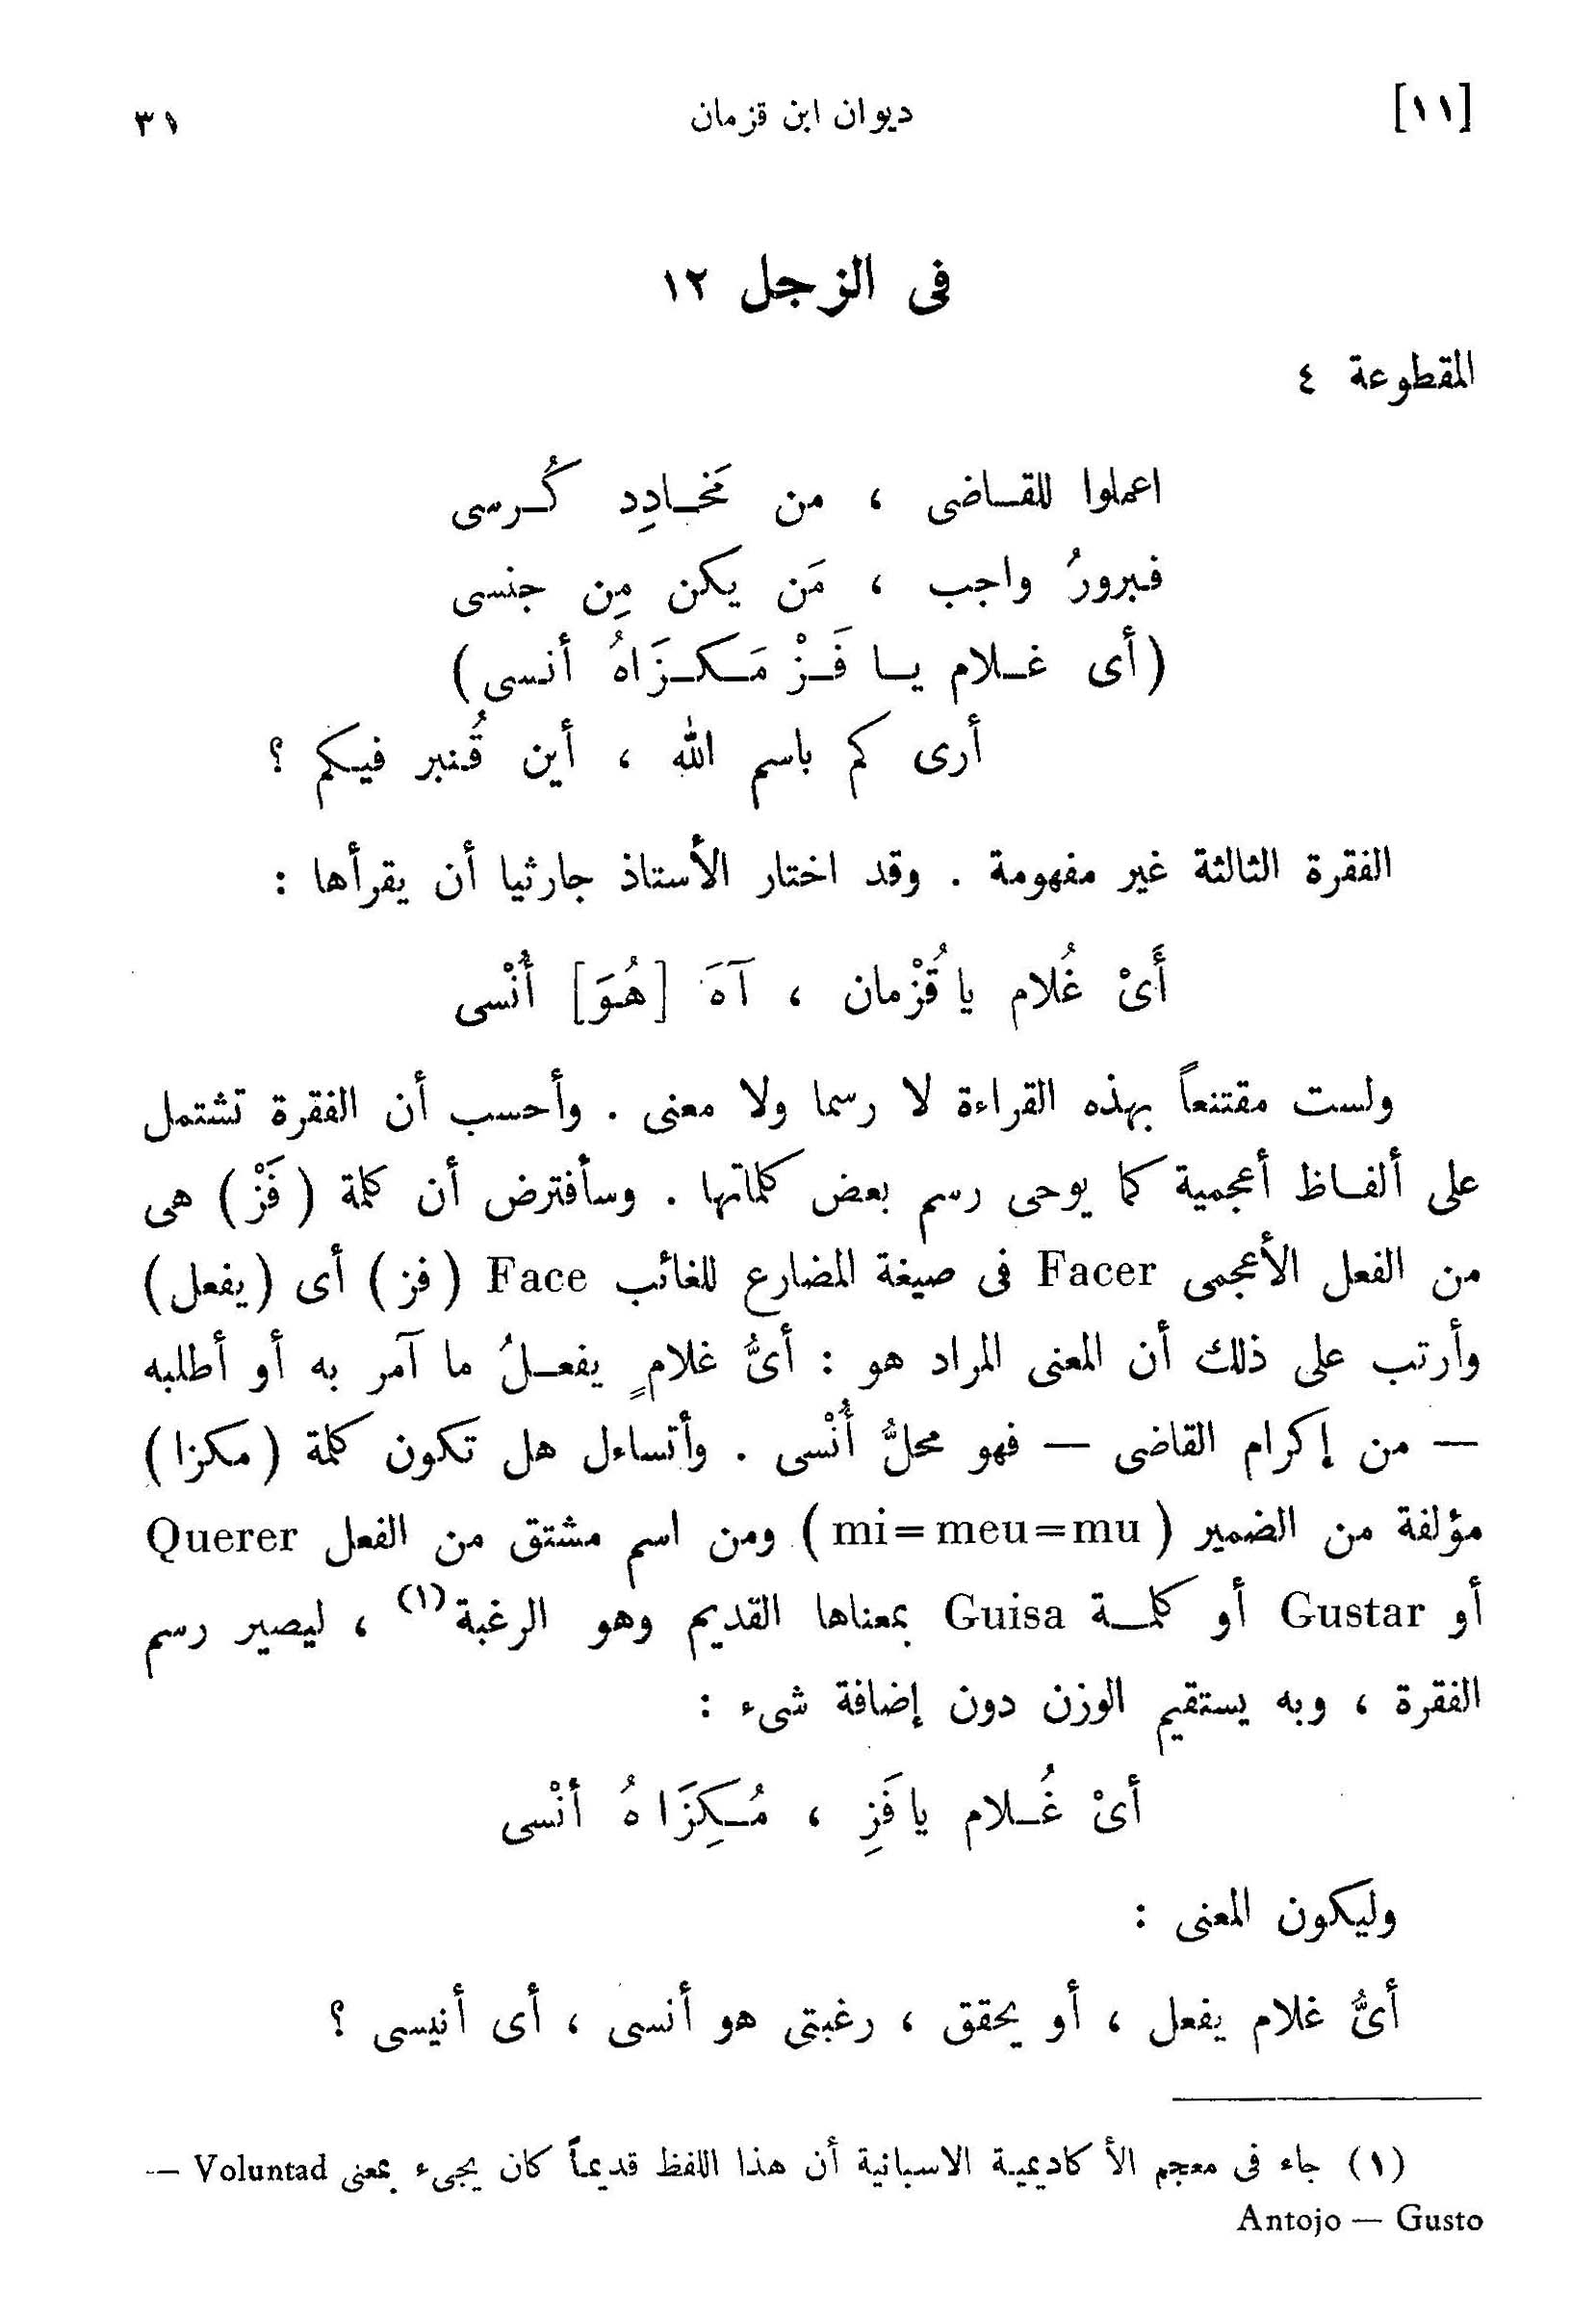 [١١] ديوان ابن قزمان ٣١
فى الزجل ١٢
المقطوعة ٤
اعملوا للقاضى ، من مَخادِد كُرسى
فبرورُ واجب ، مَن يكن مِن جنسى
(أى غلام يا فَزْ مَكزَاهُ أنسى)
أرى كم باسم الله ، أين قُنبر فيكم ؟
الفقرة الثالثة غير مفهومة . وقد اختار الأستاذ جارثيا أن يقرأها :
أَىْ غُلام يا قُزْمان ، آهَ [هُوَ] أُنْسى
ولست مقتنعاً بهذه القراءة لا رسما ولا معنى . وأحسب أن الفقرة تشتمل
على ألفاظ أعجمية كما يوحى رسم بعض كلماتها . وسأفترض أن كلمة (فَزْ) هى
من الفعل الأعجمى Facer فى صيغة المضارع للغائب Face (فز) أى (يفعل)
وأرتب على ذلك أن المعنى المراد هو : أىُّ غلامٍ يفعلُ ما آمر به أو أطلبه
— من إكرام القاضى — فهو محلُّ أُنْسى . وأتساءل هل تكون كلمة (مكزا)
مؤلفة من الضمير (mi=meu=mu) ومن اسم مشتق من الفعل Querer
أو Gustar أو كلمة Guisa بمعناها القديم وهو الرغبة(١) ، ليصير رسم
الفقرة ، وبه يستقيم الوزن دون إضافة شىء :
أىْ غُلام يا فَزِ ، مُكِزَا هُ أنْسى
وليكون المعنى :
أىُّ غلام يفعل ، أو يحقق ، رغبتى هو أنسى ، أى أنيسى ؟
(١) جاء فى معجم الأكاديمية الاسبانية أن هذا اللفظ قديماً كان يجىء بمعنى Voluntad —
Antojo — Gusto